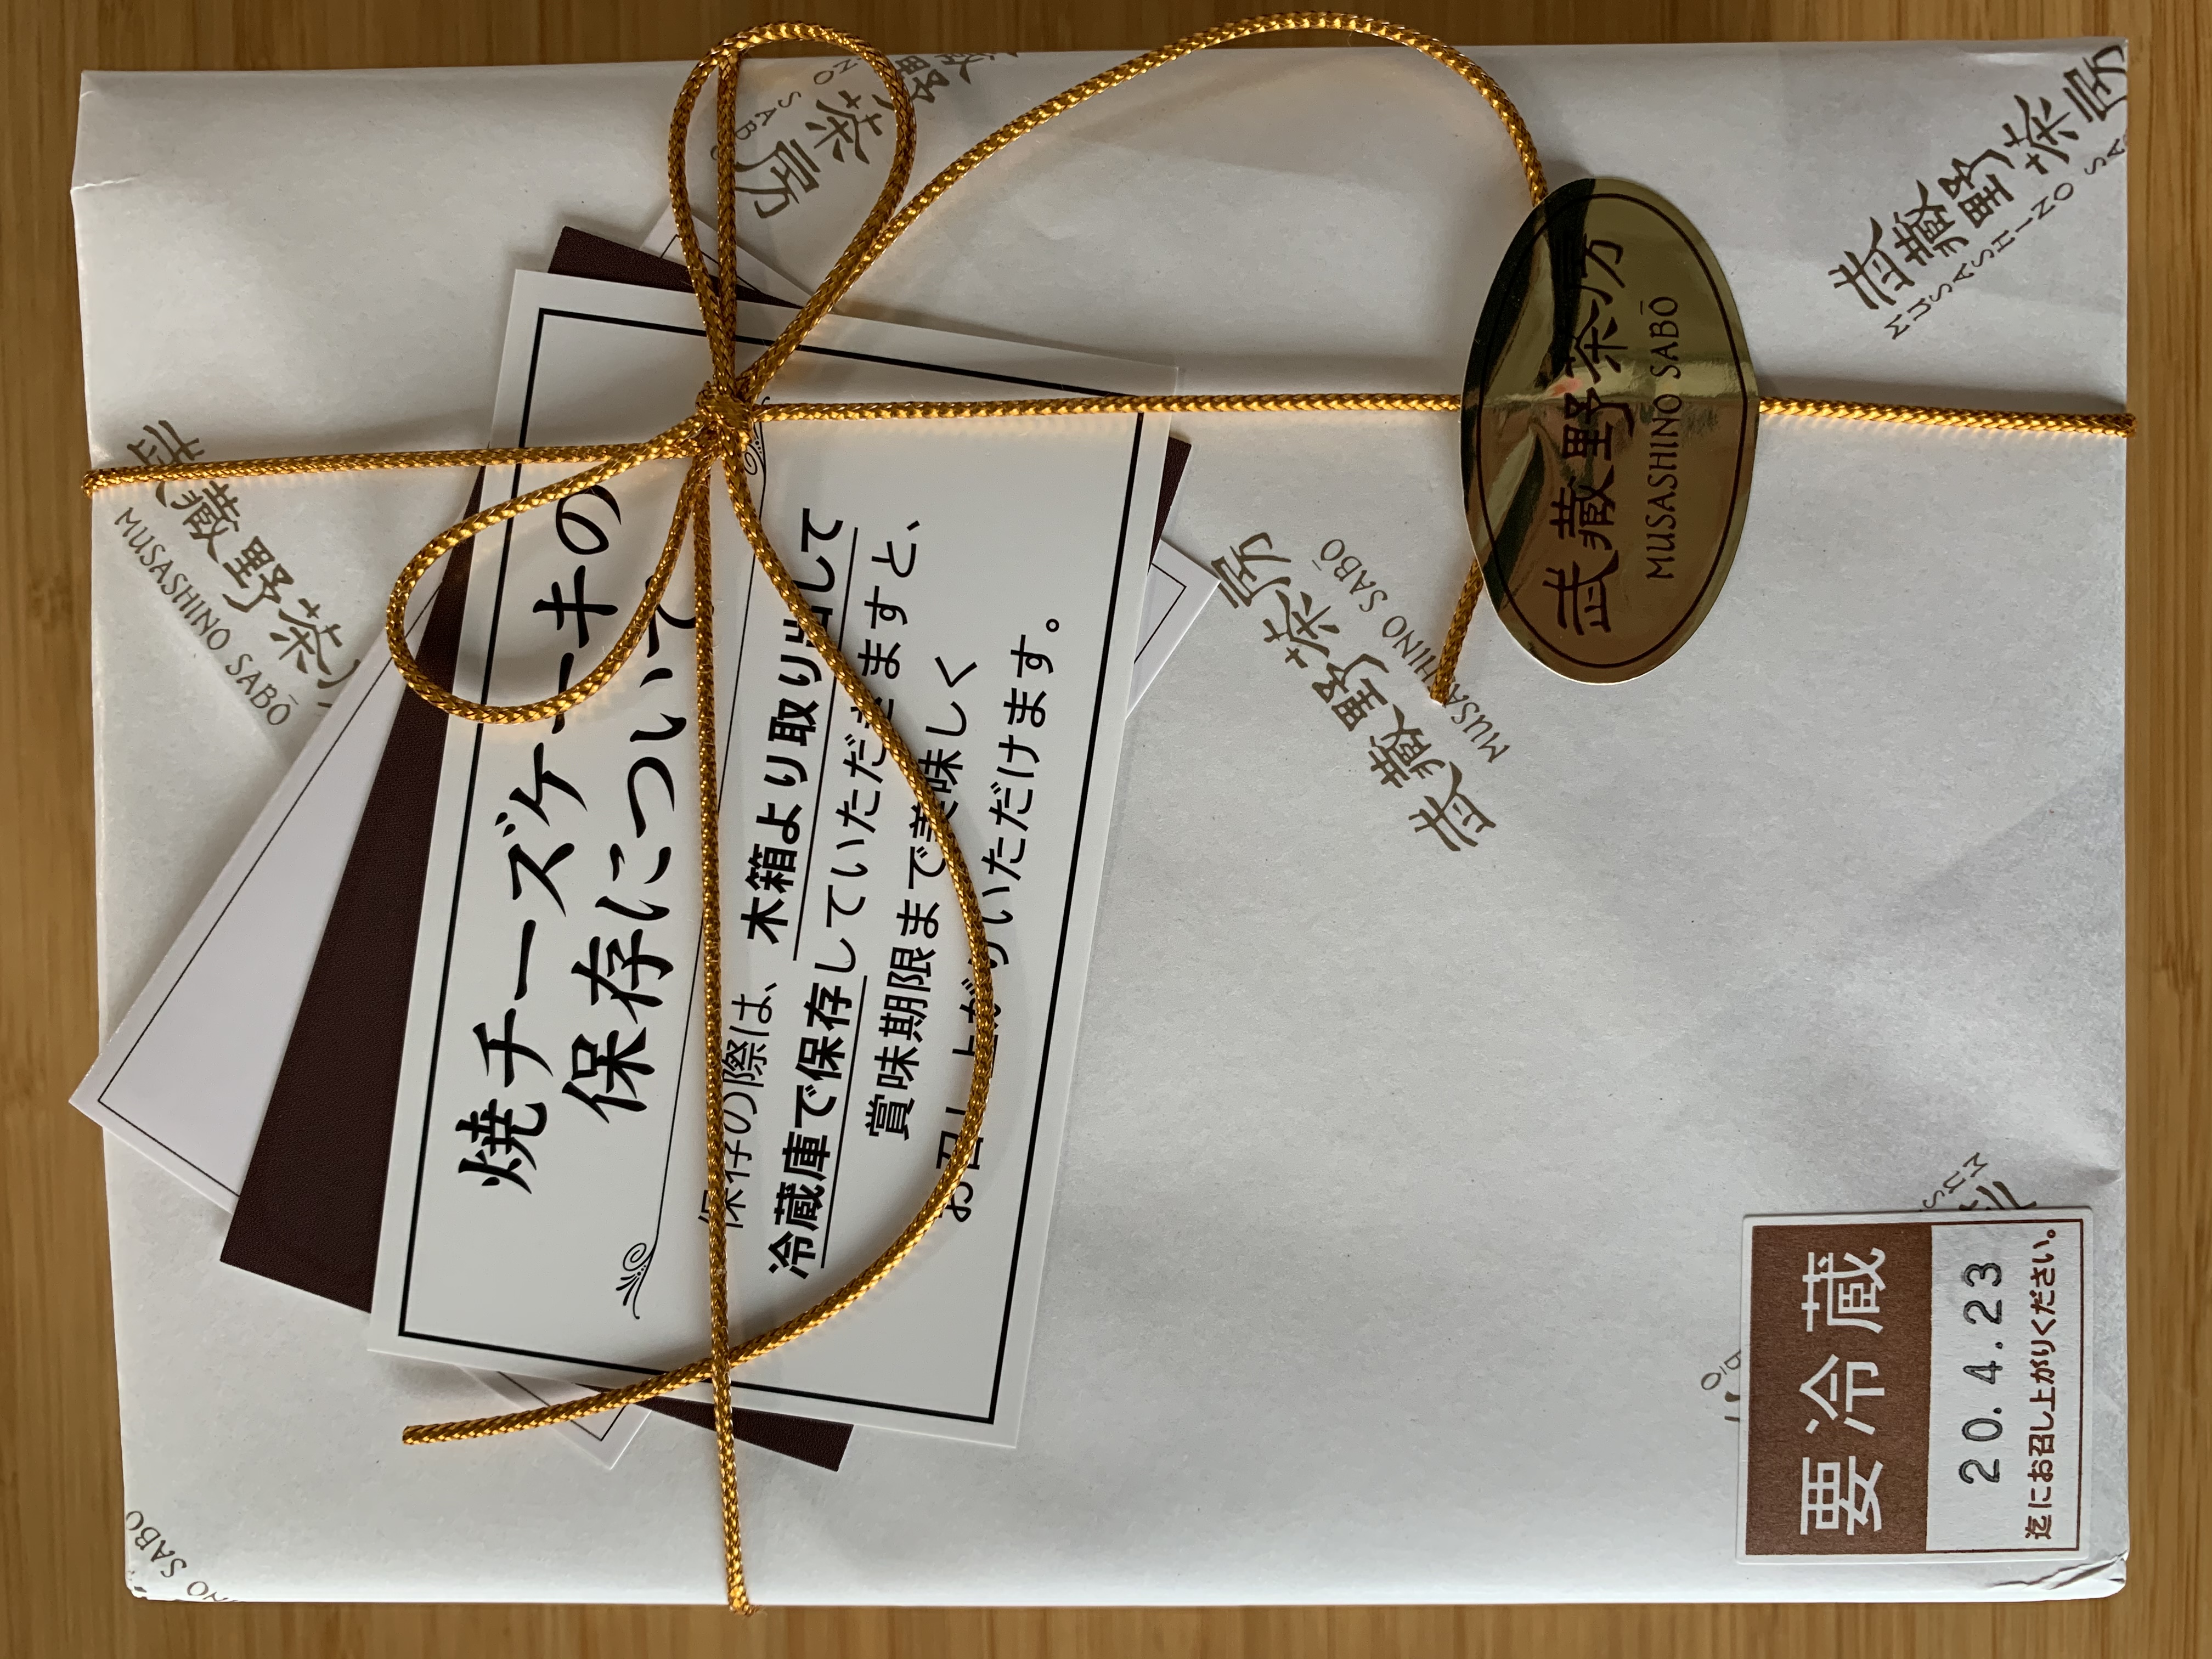 焼チーズケーキの
保存について
保存の際は、木箱より取り出して
冷蔵庫で保存していただきますと、
賞味期限まで美味しく
お召し上がりいただけます。
武蔵野茶房
MUSASHINO SABŌ
武蔵野茶房
MUSASHINO SABŌ
武蔵野茶房
MUSASHINO SABŌ
武蔵野茶房
MUSASHINO SA
武蔵野茶房
NO SABŌ
NO SABŌ
MUS
要冷蔵
20.4.23
迄にお召し上がりください。